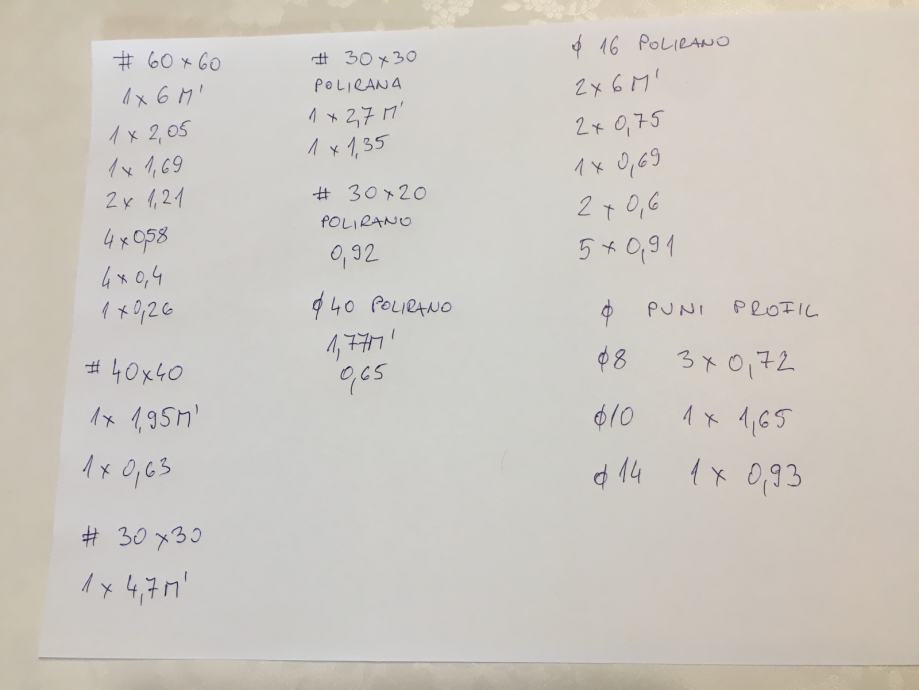 # 60x60
1 x 6 M'
1 x 2,05
1 x 1,69
2 x 1,21
4 x 0,58
4 x 0,4
1 x 0,26
# 40x40
1x 1,95M'
1 x 0,63
# 30x30
1 x 4,7M'
# 30x30
POLIRANA
1 x 2,7 M'
1 x 1,35
# 30x20
POLIRANO
0,92
ϕ 40 POLIRANO
1,77M'
0,65
ϕ 16 POLIRANO
2 x 6 M'
2 x 0,75
1 x 0,69
2 x 0,6
5 x 0,91
ϕ PUNI PROFIL
ϕ8 3 x 0,72
ϕ10 1 x 1,65
ϕ14 1 x 0,93